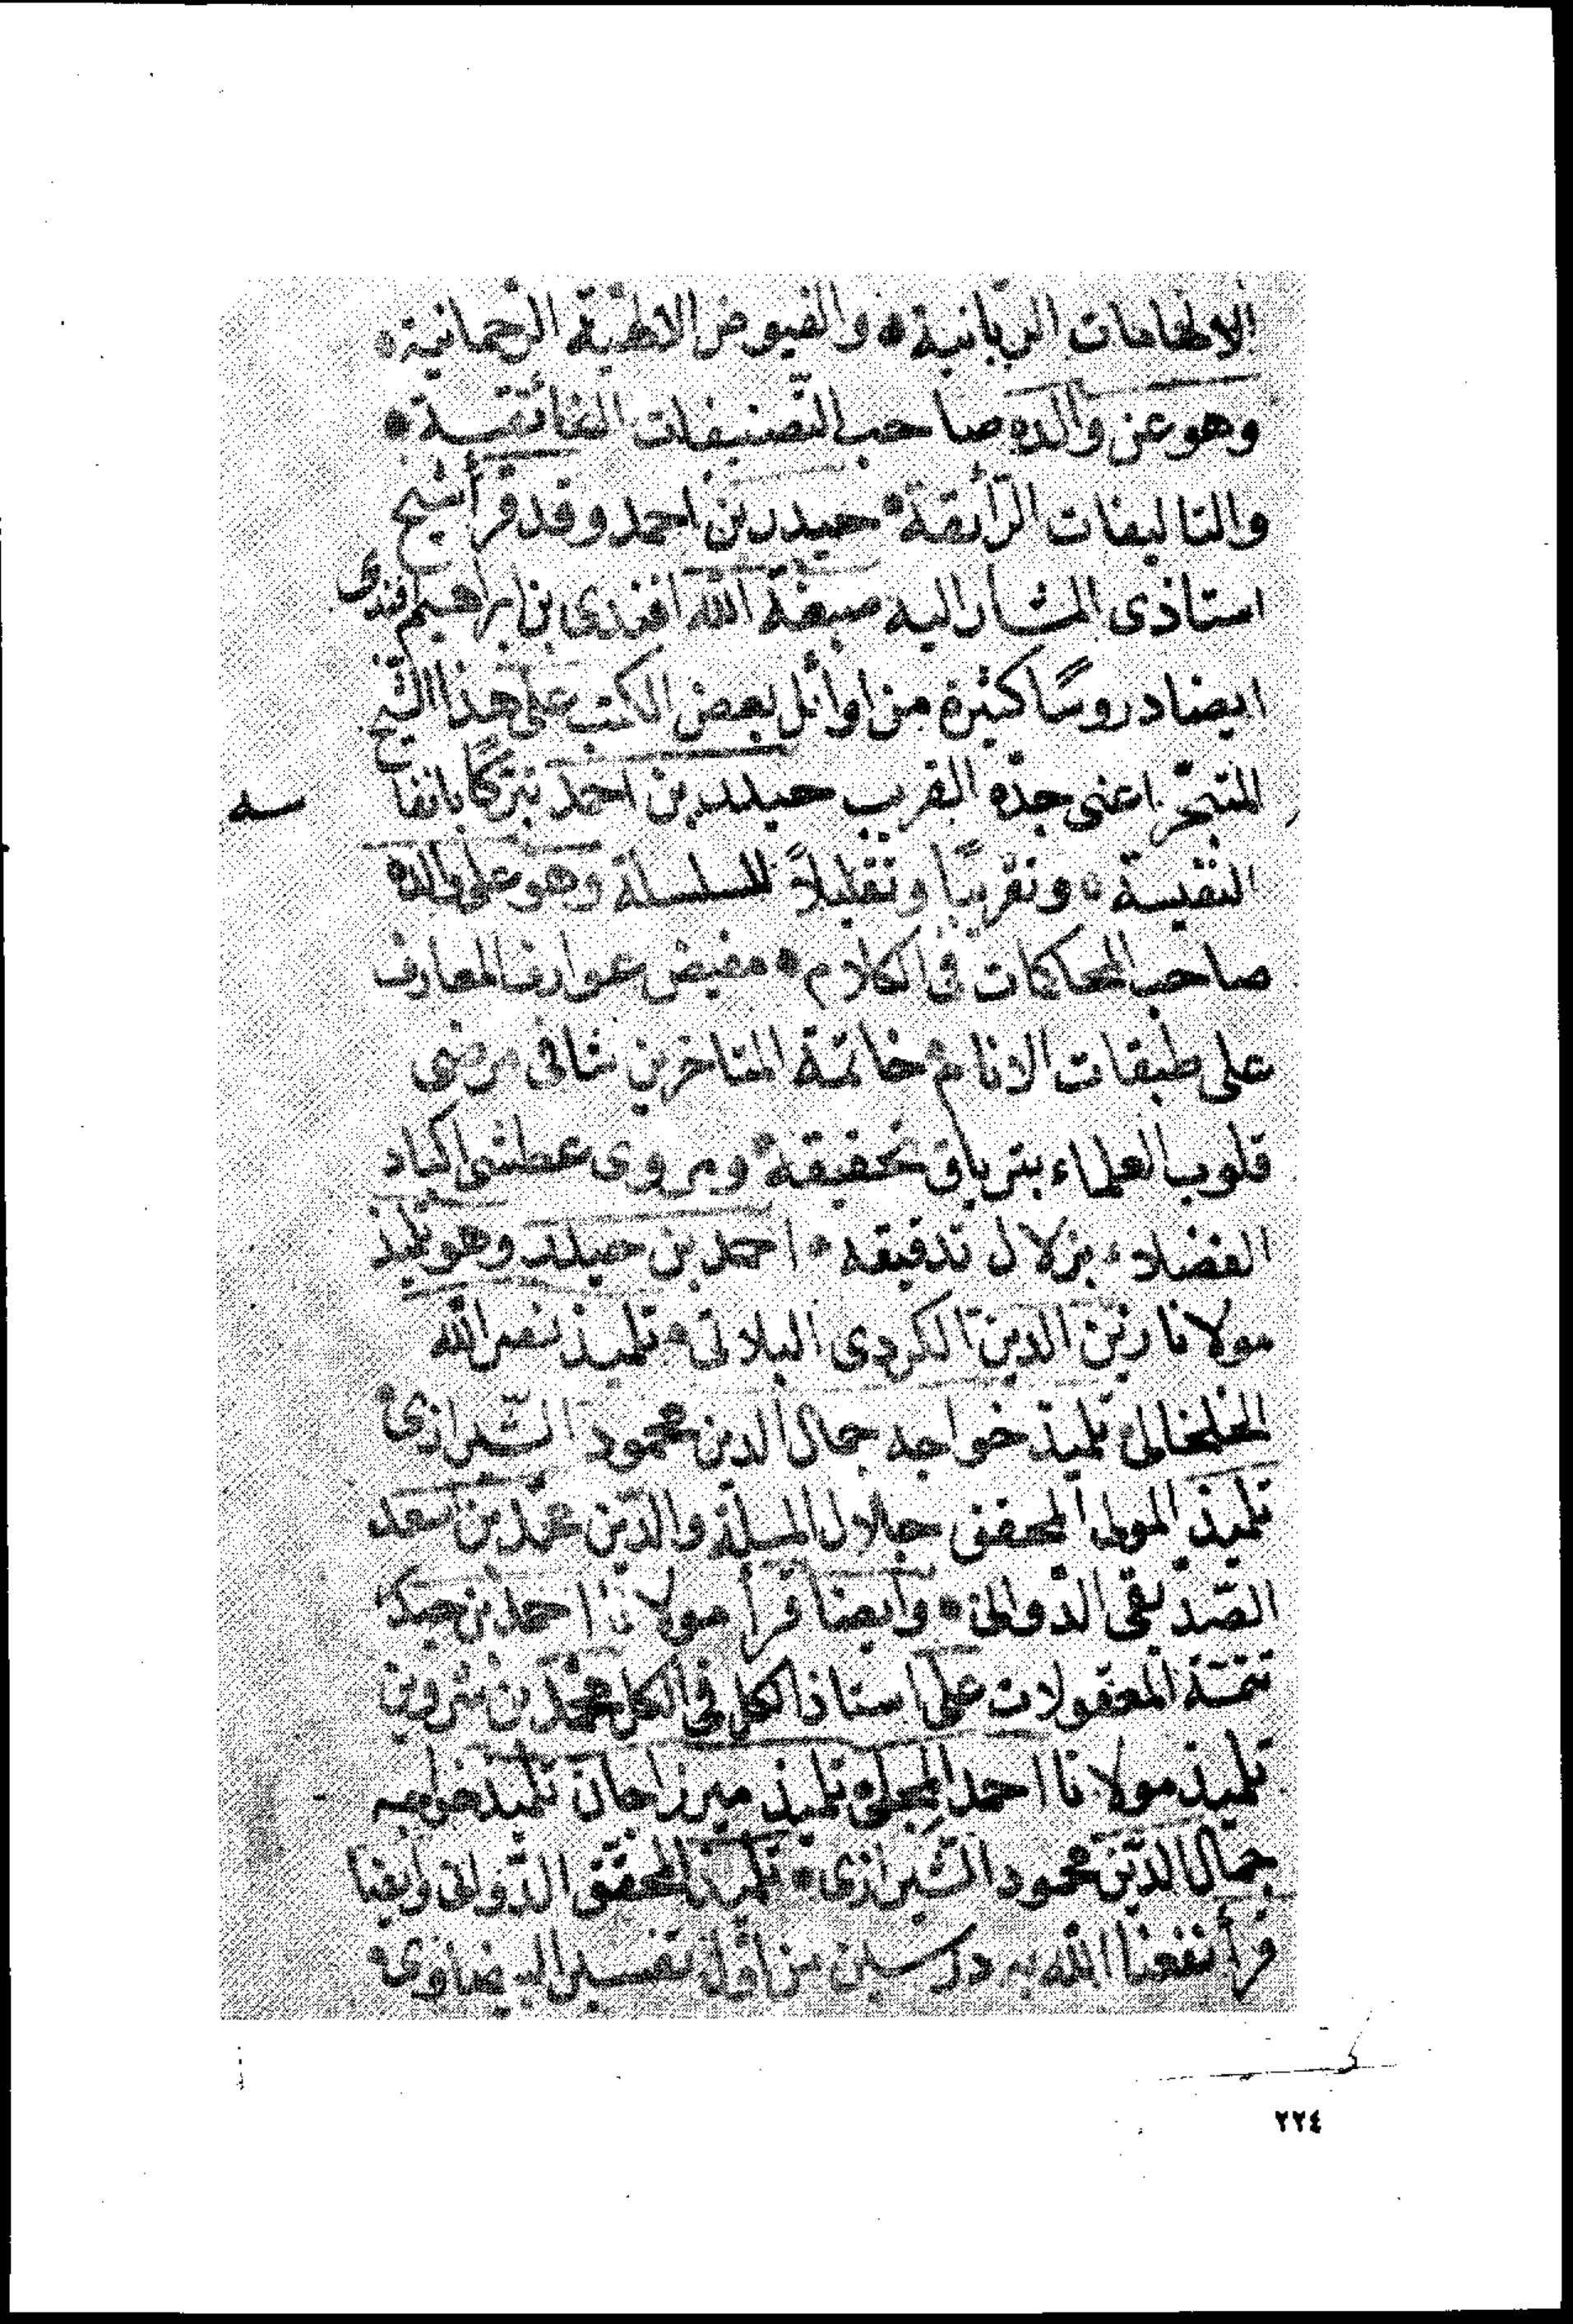 الالهامات الربانية * والفيوض الالهية الرحمانية *
وهو عن والده صاحب التصنيفات الفائقية *
والتاليفات الرائقة * حيدر بن احمد وقد قرأ شيخ
استاذى المشار اليه صبغة الله افندى بن ابراهيم افندى
ايضا دروسًا كثيرة من اوائل بعض الكتب على هذا الشيخ
المتبحر اعنى جده القريب حيدر بن احمد تبركًا بانفا
سه
النفيسة * وتقريبًا وتقليلاً للسلسلة وهو على والده
صاحب المحاكمات فى الكلام * مفيض عوارف المعارف
على طبقات الانام * خاتمة المتاخرين شافى مرضى
قلوب العلماء بترياق تحقيقه * ومروى عطشى اكباد
الفضلاء بزلال تدقيقه * احمد بن حيدر وهو تلميذ
مولانا زين الدين الكردى البلاتى * تلميذ نصر الله
الخلخالى تلميذ خواجه جمال الدين محمود الشيرازى *
تلميذ المولى المحقق جلال الملة والدين محمد بن اسعد
الصديقى الدوانى * وأيضا قرأ مولانا احمد بن حيدر
تتمة المعقولات على استاذ الكل فى الكل محمد بن شروين
تلميذ مولانا احمد المجلى تلميذ ميرزاجان تلميذ خواجه
جمال الدين محمود الشيرازى * تلميذ المحقق الدوانى وايضا
قرأ نفعنا الله به درسين من أول تفسير البيضاوى *
٢٢٤